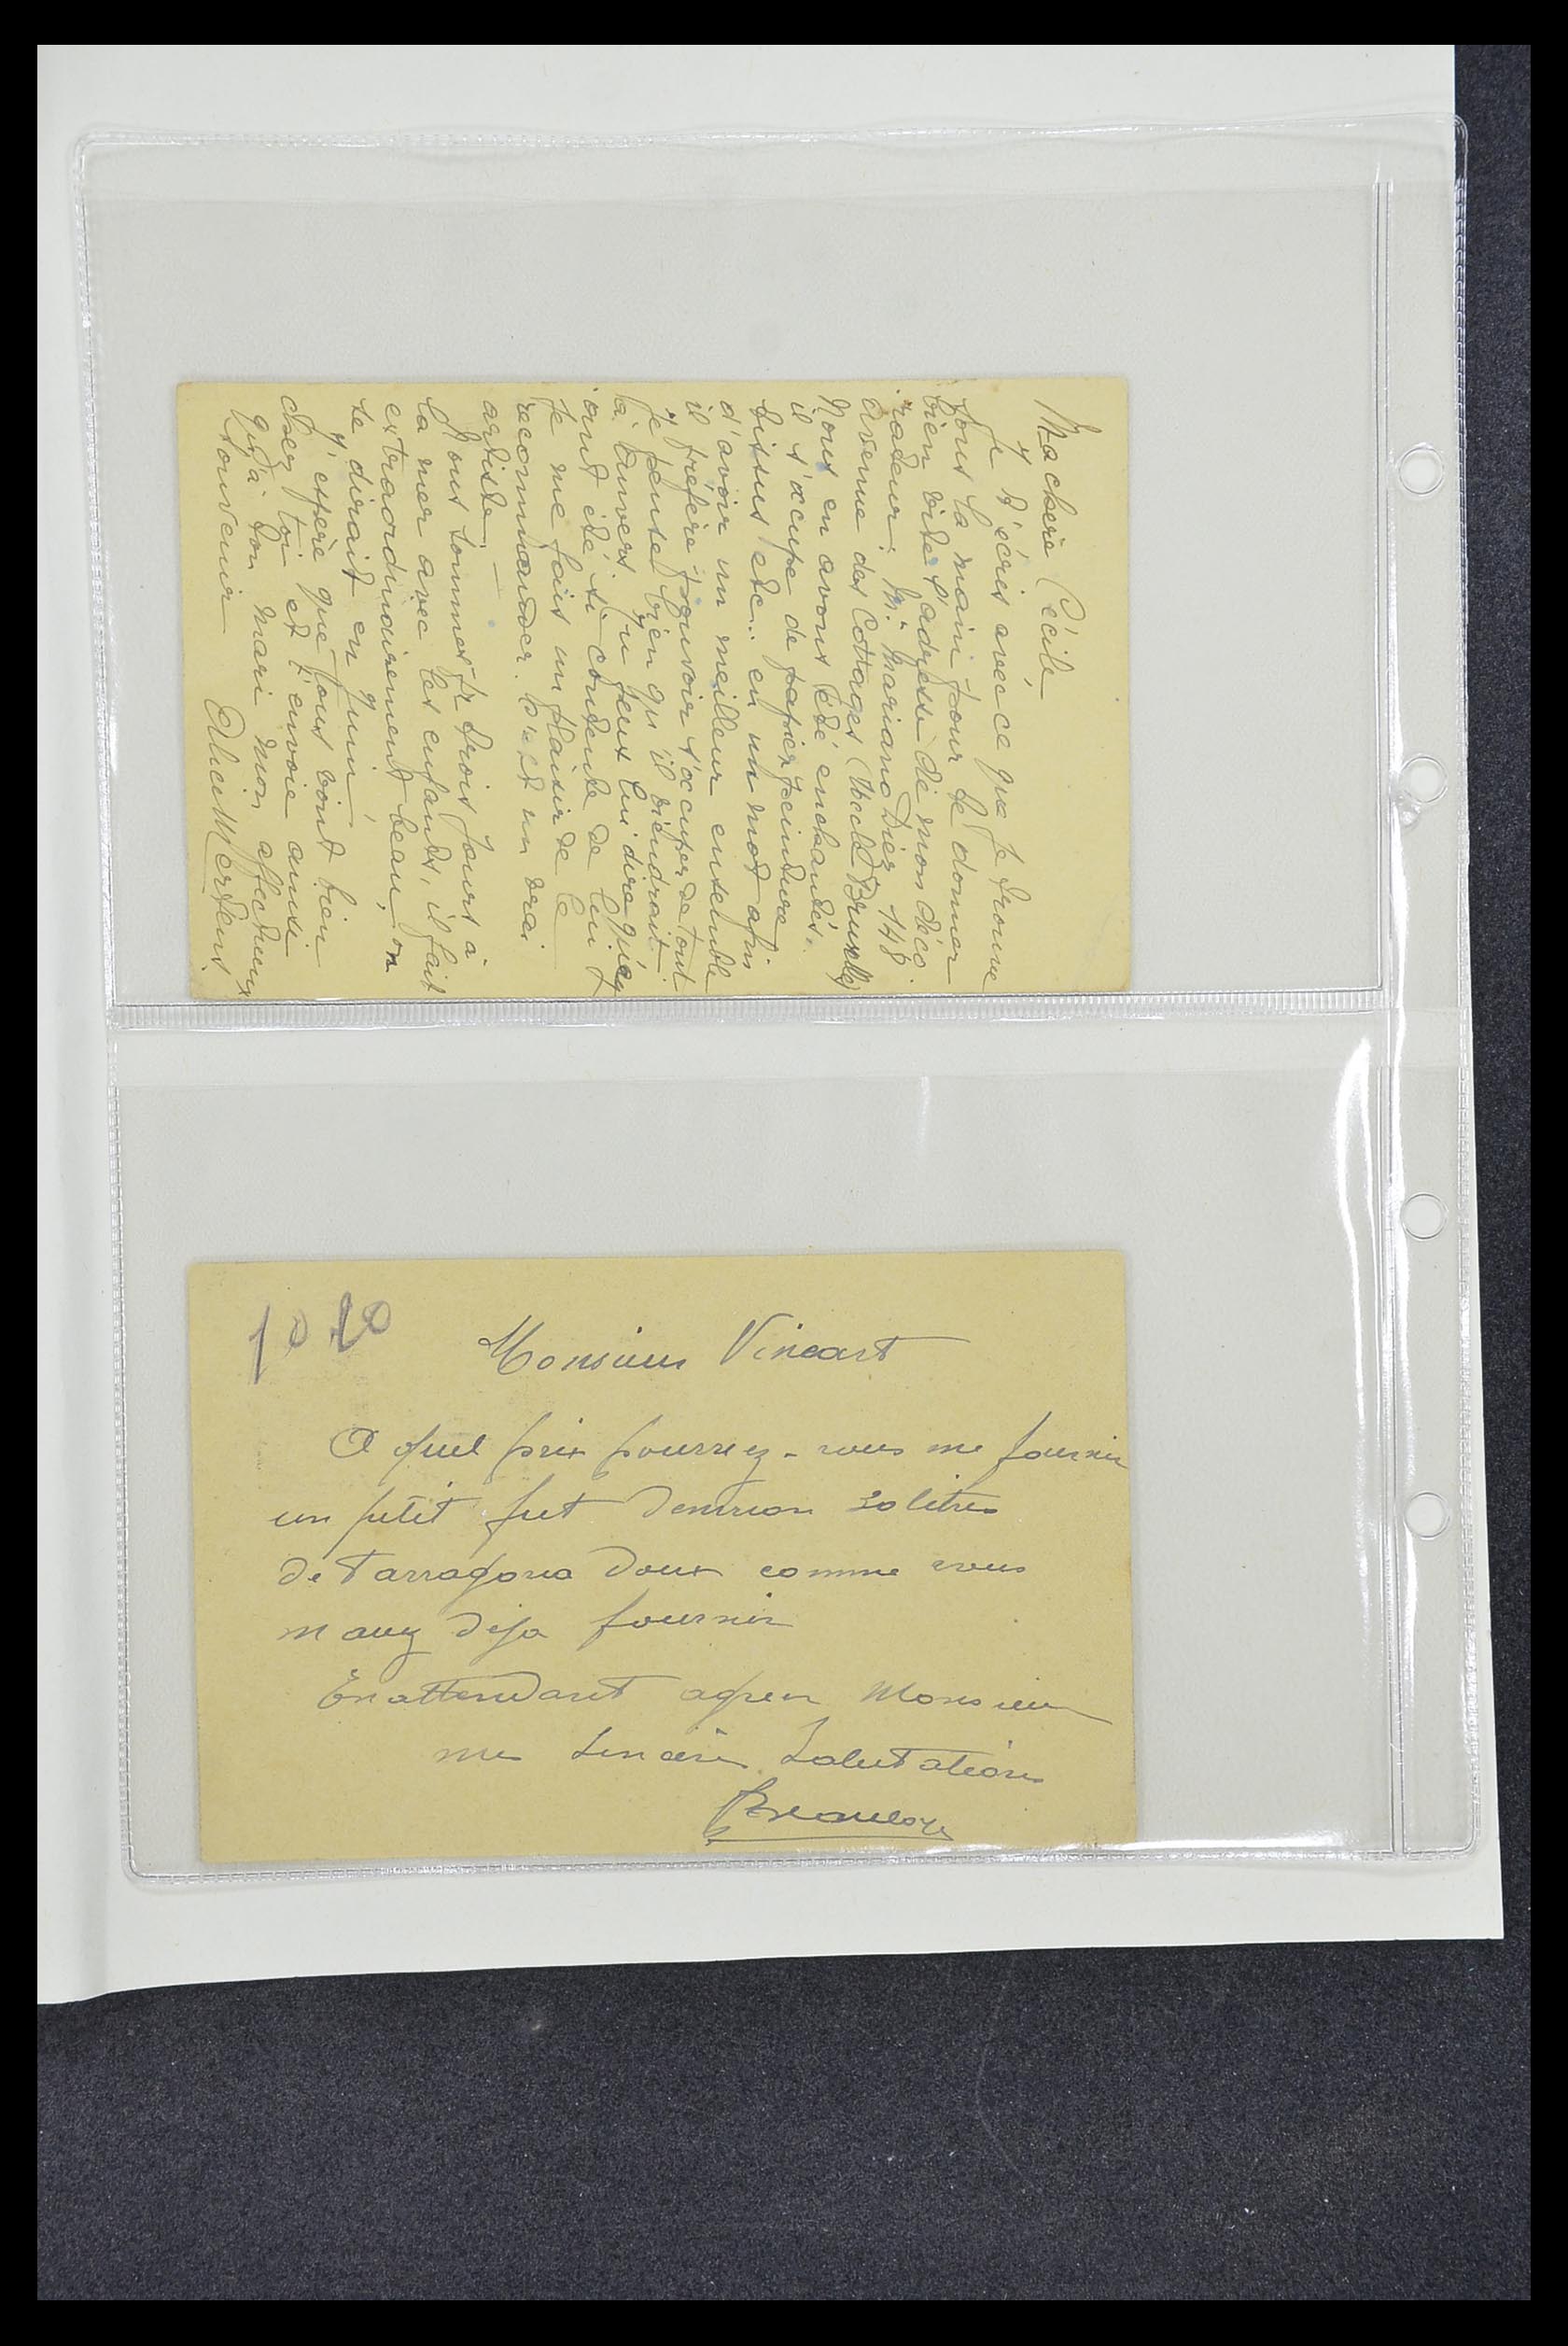 Ma chère Cécile,
Je t'écris avec ce que je trouve
sous la main pour te donner
bien vite l'adresse de mon déco
rateur: Mr Mariano Diez 148
Avenue des Cottages (Uccle Bruxelles)
Nous en avons été enchantés.
il s'occupe de papier peinture
tissus etc.. en un mot afin
d'avoir un meilleur ensemble
il préfère pouvoir s'occuper de tout.
Je pense bien qu'il viendrait
à Anvers. Tu peux lui dire que
j'ai été si contente de lui
je me fais un plaisir de le
recommander. C'est un vrai
artiste. —
Nous sommes pr trois jours à
la mer avec les enfants, il fait
extraordinairement beau, on
se dirait en Juin!
J'espère que tous vont bien
chez toi et t'envoie ainsi
qu'à ton mari mon affectueux
souvenir
Alice Mertens.
1020
Monsieur Vincart
A quel prix pourrez-vous me fournir
un petit fut denvion 30 litres
de Tarragona doux comme vous
mavez deja fournir
En attendant agreer Monsieur
mes sinceres Salutations